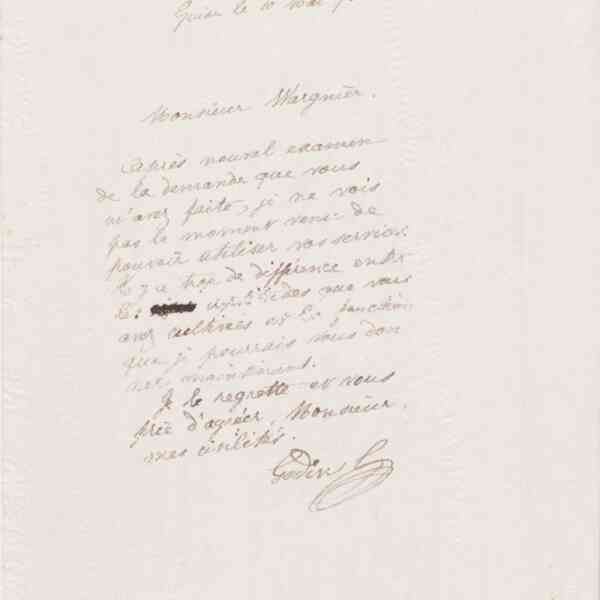 Guise le 10 mai
Monsieur Wargnier.
Après nouvel examen
de la demande que vous
m'avez faite, je ne vois
pas le moment venu de
pouvoir utiliser vos services.
Il y a trop de différence entre
les que vous
avez cultivés et la fonction
que je pourrais vous don
ner maintenant.
Je le regrette et vous
prie d'agréer, Monsieur,
mes civilités.
Godin